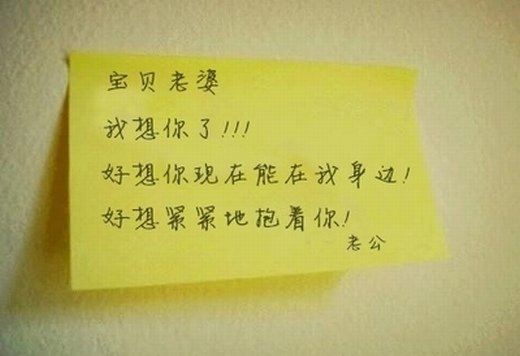 宝贝老婆
我想你了!!!
好想你现在能在我身边!
好想紧紧地抱着你!
老公